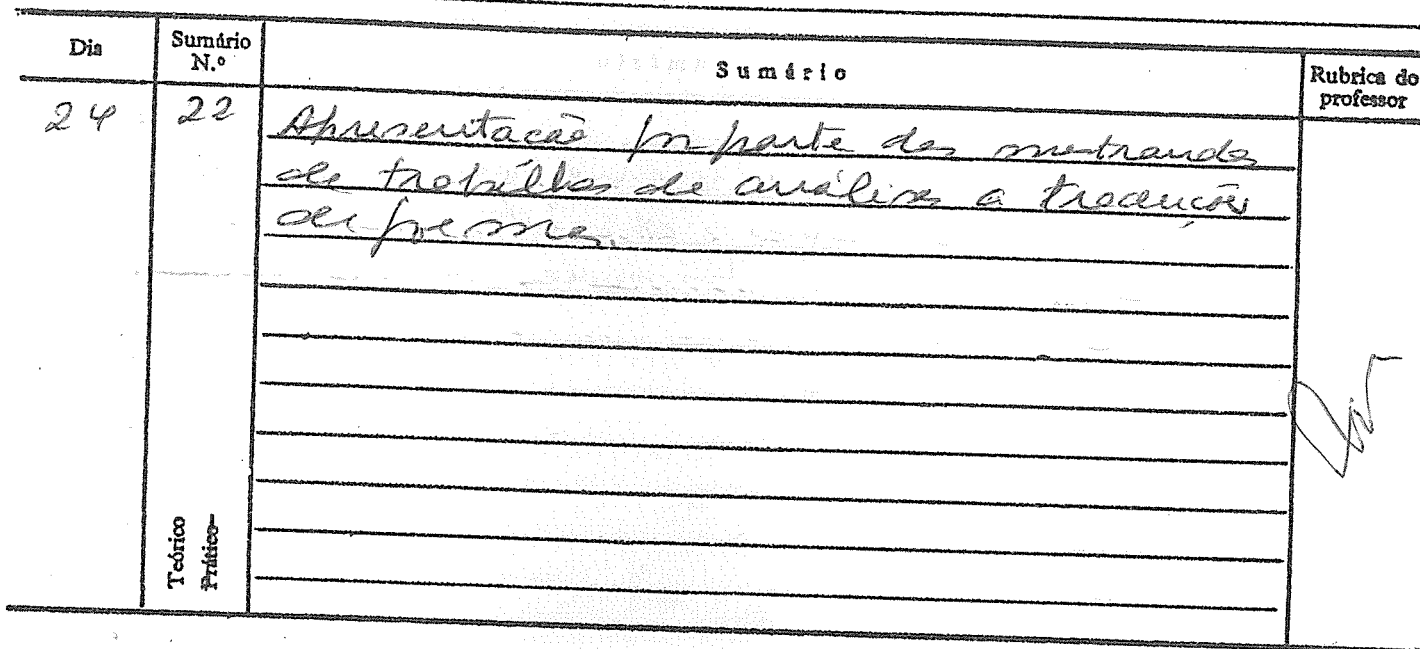 Dia
Sumário N.º
Sumário
Rubrica do professor
24
22
Apresentação por parte dos mestrandos
de trabalhos de análise a traduções
de poemas.
Teórico
Prático